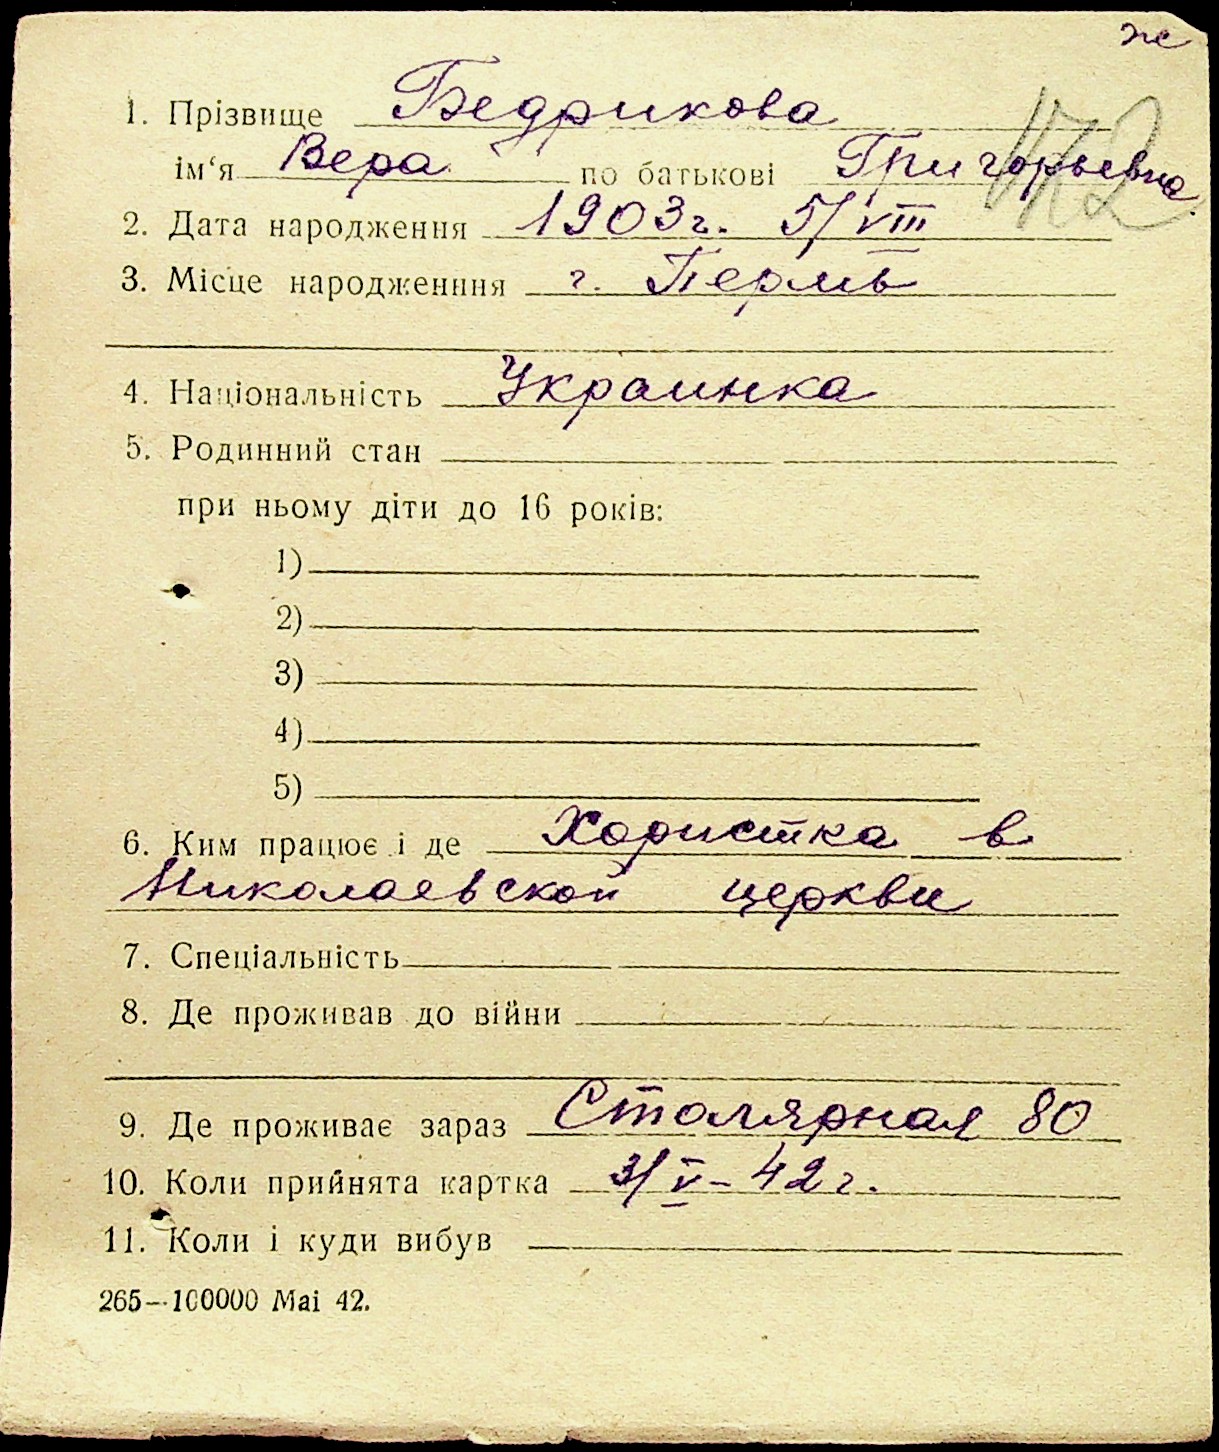 ж
1. Прізвище Бедрикова
ім‘я Вера по батькові Григорьевна
2. Дата народження 1903г. 5/VIII
3. Місце народженння г. Пермь
4. Національність Украинка
5. Родинний стан
при ньому діти до 16 років:
1)
2)
3)
4)
5)
6. Ким працює і де Хористка в
Николаевской церкви
7. Спеціальність
8. Де проживав до війни
9. Де проживає зараз Столярная 80
10. Коли прийнята картка 3/V-42г.
11. Коли і куди вибув
265—100000 Mai 42.